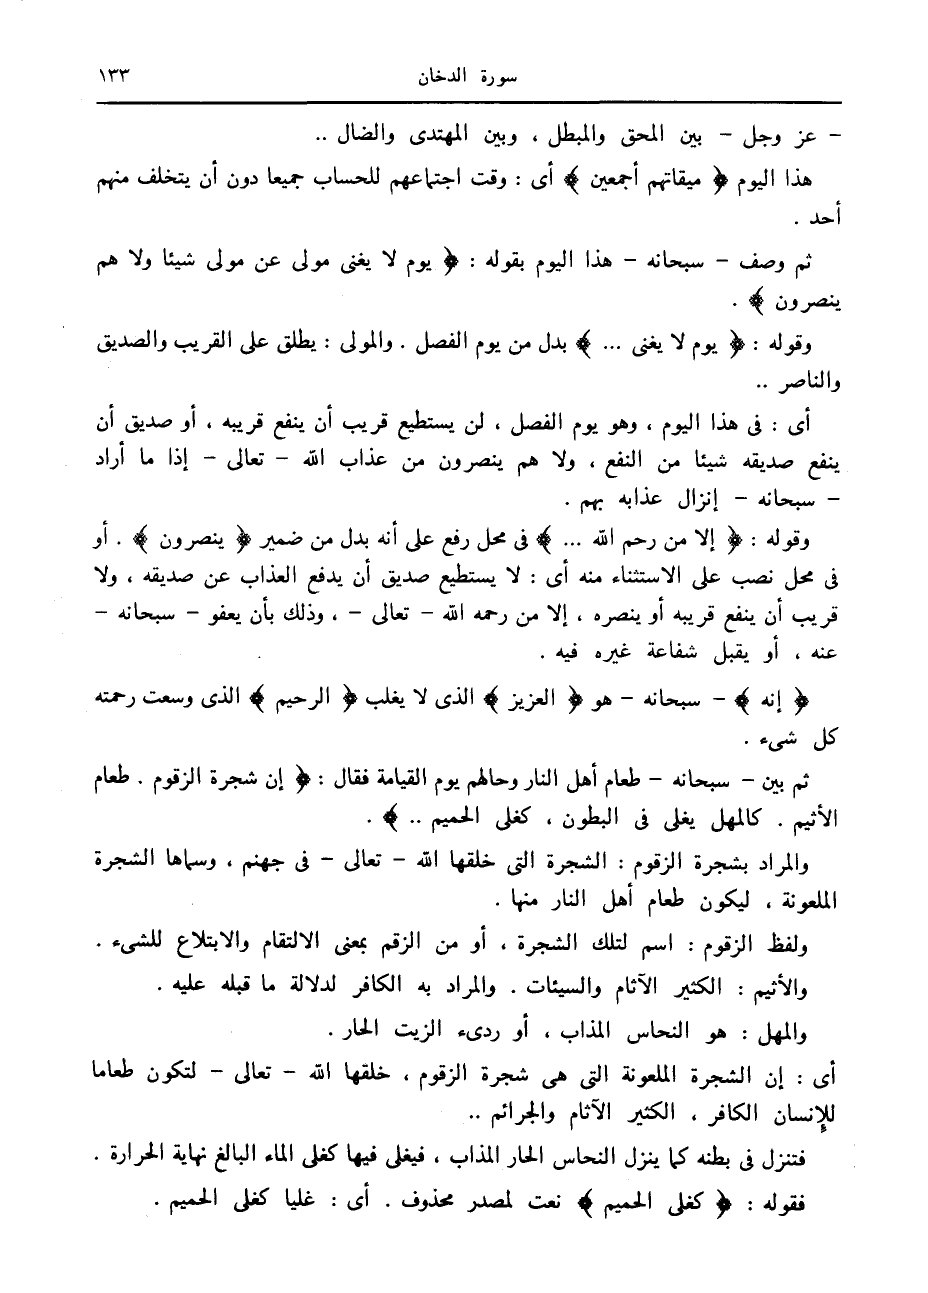 سورة الدخان ١٣٣
– عز وجل – بين المحق والمبطل ، وبين المهتدى والضال ..
هذا اليوم ﴿ ميقاتهم أجمعين ﴾ أى : وقت اجتماعهم للحساب جميعا دون أن يتخلف منهم
أحد .
ثم وصف – سبحانه – هذا اليوم بقوله : ﴿ يوم لا يغنى مولى عن مولى شيئا ولا هم
ينصرون ﴾ .
وقوله : ﴿ يوم لا يغنى ... ﴾ بدل من يوم الفصل . والمولى : يطلق على القريب والصديق
والناصر ..
أى : فى هذا اليوم ، وهو يوم الفصل ، لن يستطيع قريب أن ينفع قريبه ، أو صديق أن
ينفع صديقه شيئا من النفع ، ولا هم ينصرون من عذاب الله – تعالى – إذا ما أراد
– سبحانه – إنزال عذابه بهم .
وقوله : ﴿ إلا من رحم الله ... ﴾ فى محل رفع على أنه بدل من ضمير ﴿ ينصرون ﴾ . أو
فى محل نصب على الاستثناء منه أى : لا يستطيع صديق أن يدفع العذاب عن صديقه ، ولا
قريب أن ينفع قريبه أو ينصره ، إلا من رحمه الله – تعالى – ، وذلك بأن يعفو – سبحانه –
عنه ، أو يقبل شفاعة غيره فيه .
﴿ إنه ﴾ – سبحانه – هو ﴿ العزيز ﴾ الذى لا يغلب ﴿ الرحيم ﴾ الذى وسعت رحمته
كل شىء .
ثم بين – سبحانه – طعام أهل النار وحالهم يوم القيامة فقال : ﴿ إن شجرة الزقوم . طعام
الأثيم . كالمهل يغلى فى البطون ، كغلى الحميم .. ﴾ .
والمراد بشجرة الزقوم : الشجرة التى خلقها الله – تعالى – فى جهنم ، وسماها الشجرة
الملعونة ، ليكون طعام أهل النار منها .
ولفظ الزقوم : اسم لتلك الشجرة ، أو من الزقم بمعنى الالتقام والابتلاع للشىء .
والأثيم : الكثير الآثام والسيئات . والمراد به الكافر لدلالة ما قبله عليه .
والمهل : هو النحاس المذاب ، أو ردىء الزيت الحار .
أى : إن الشجرة الملعونة التى هى شجرة الزقوم ، خلقها الله – تعالى – لتكون طعاما
للإنسان الكافر ، الكثير الآثام والجرائم ..
فتنزل فى بطنه كما ينزل النحاس الحار المذاب ، فيغلى فيها كغلى الماء البالغ نهاية الحرارة .
فقوله : ﴿ كغلى الحميم ﴾ نعت لمصدر محذوف . أى : غليا كغلى الحميم .